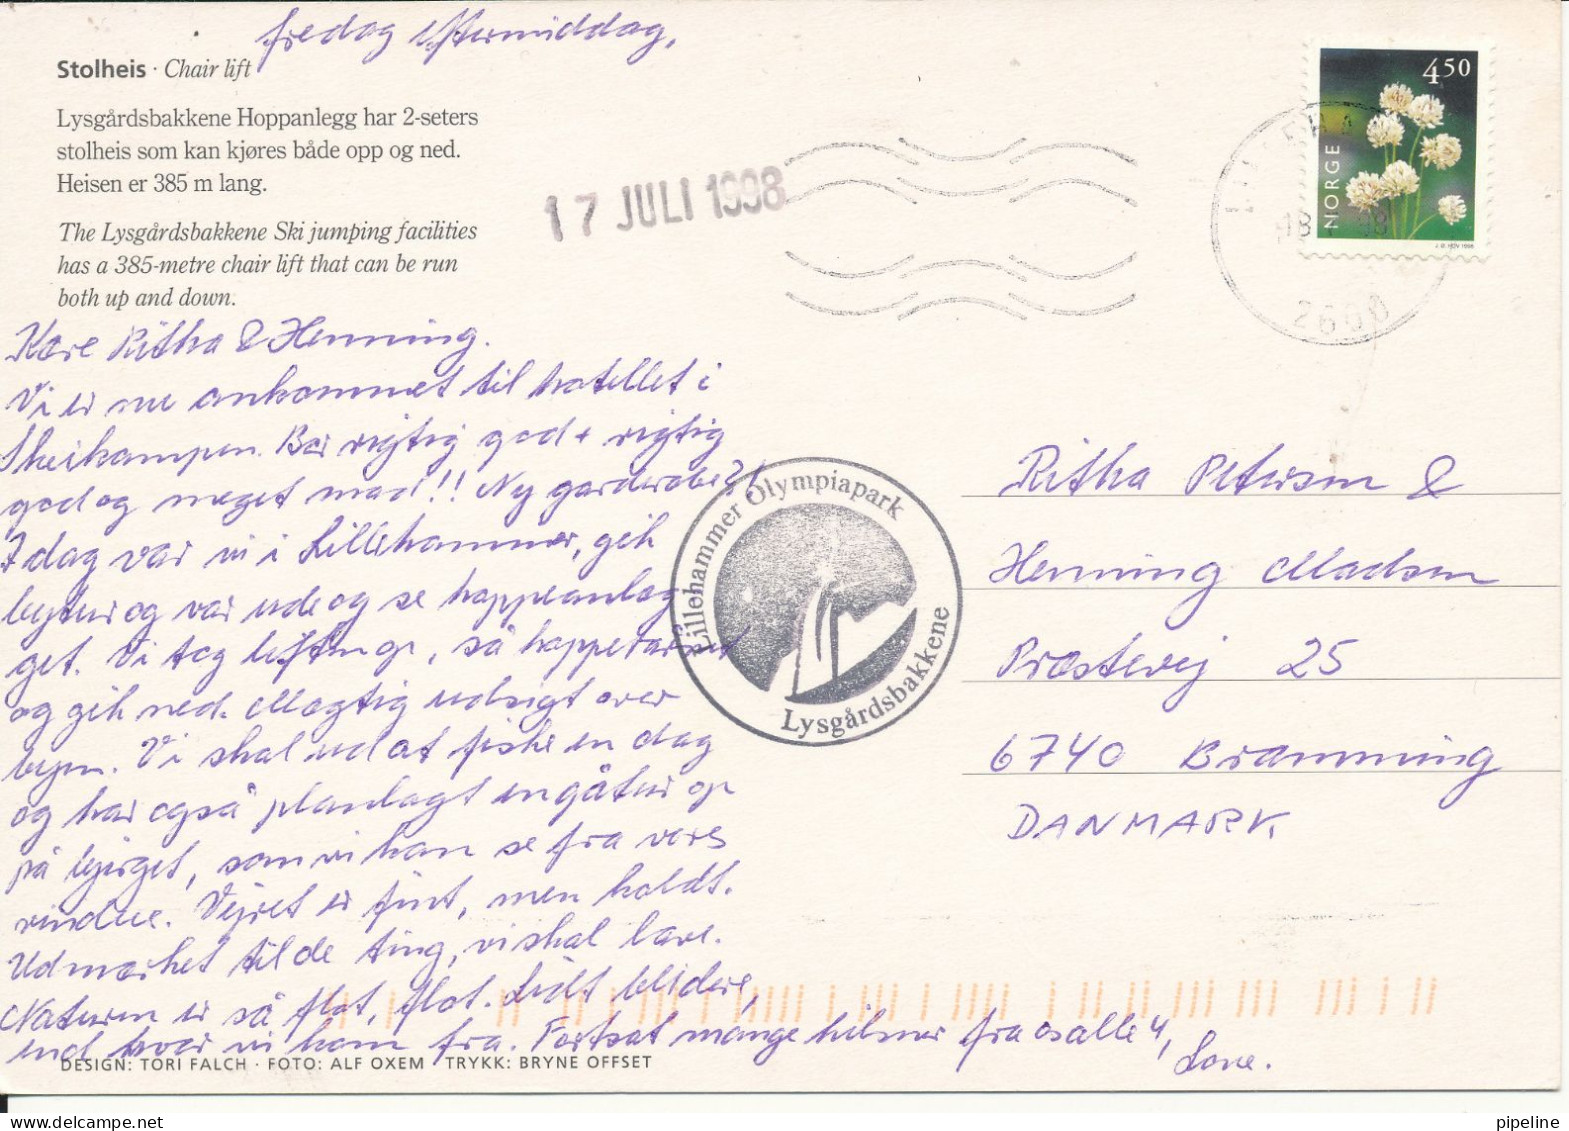 fredag eftermiddag,
Stolheis · Chair lift
Lysgårdsbakkene Hoppanlegg har 2-seters
stolheis som kan kjøres både opp og ned.
Heisen er 385 m lang.
The Lysgårdsbakkene Ski jumping facilities
has a 385-metre chair lift that can be run
both up and down.
17 JULI 1998
450
NORGE
2608
Kære Ritha & Henning.
Vi er nu ankommet til hotellet i
Skeikampen. Bar rigtig god + rigtig
god og meget mad!! Ny garderobe?!
I dag var vi i Lillehammer, gik
bytur og var ude og se hoppeanlæg
get. Vi tog liften op, så
og gik ned. Mægtig udsigt over
byen. Vi skal ud at fiske en dag
og har også planlagt en gåtur op
på bjerget, som vi kan se fra vores
vindue. Vejret er fint, men koldt.
Udmærket til de ting, vi skal lave.
Naturen er så flot, flot. Lidt blidere,
end hvor vi kom fra. Fortsat mange hilsner fra os alle 4,
Lone.
Lillehammer Olympiapark
Lysgårdsbakkene
Ritha Petersen &
Henning Madsen
Præstevej 25
6740 Bramming
DANMARK
DESIGN: TORI FALCH · FOTO: ALF OXEM · TRYKK: BRYNE OFFSET
pipeline